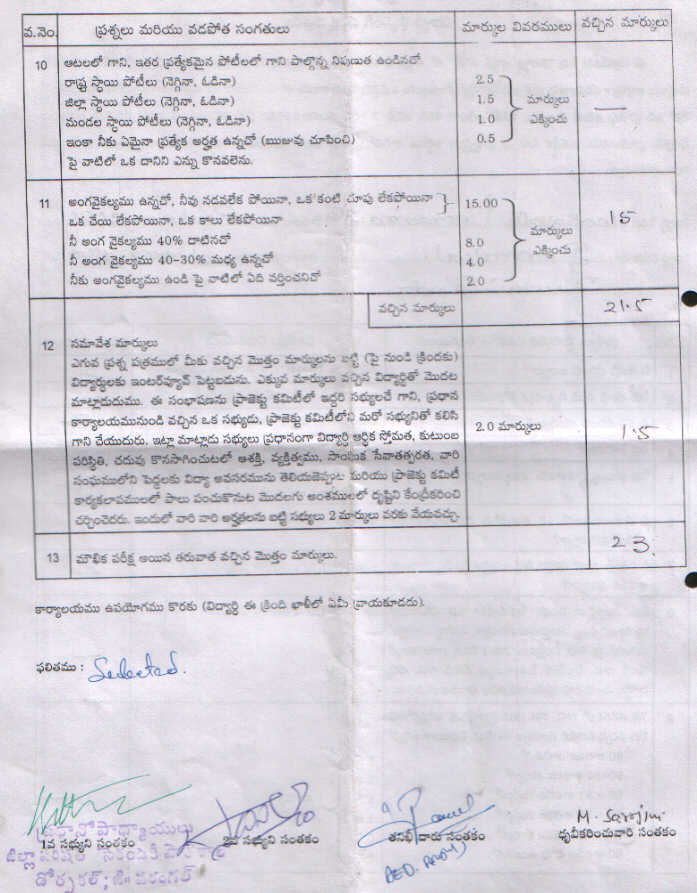 వ.నెం. ప్రశ్నలు మరియు వడపోత సంగతులు మార్కుల వివరములు వచ్చిన మార్కులు
10 ఆటలలో గాని, ఇతర ప్రత్యేకమైన పోటీలలో గాని పాల్గొన్న నిపుణత ఉండినచో
రాష్ట్ర స్థాయి పోటీలు (నెగ్గినా, ఓడినా) 2.5
జిల్లా స్థాయి పోటీలు (నెగ్గినా, ఓడినా) 1.5 మార్కులు —
మండల స్థాయి పోటీలు (నెగ్గినా, ఓడినా) 1.0 ఎక్కించు
ఇంకా నీకు ఏమైనా ప్రత్యేక అర్హత ఉన్నచో (ఋజువు చూపించి) 0.5
పై వాటిలో ఒక దానిని ఎన్ను కొనవలెను.
11 అంగవైకల్యము ఉన్నచో, నీవు నడవలేక పోయినా, ఒక కంటి చూపు లేకపోయినా 15.00
ఒక చేయి లేకపోయినా, ఒక కాలు లేకపోయినా మార్కులు 15
నీ అంగ వైకల్యము 40% దాటినచో 8.0 ఎక్కించు
నీ అంగ వైకల్యము 40-30% మధ్య ఉన్నచో 4.0
నీకు అంగవైకల్యము ఉండి పై వాటిలో ఏది వర్తించనిచో 2.0
వచ్చిన మార్కులు 21.5
12 సమావేశ మార్కులు
ఎగువ ప్రశ్న పత్రములో మీకు వచ్చిన మొత్తం మార్కులను బట్టి (పై నుండి క్రిందకు)
విద్యార్థులకు ఇంటర్వ్యూవ్ పెట్టబడును. ఎక్కువ మార్కులు వచ్చిన విద్యార్థితో మొదట
మాట్లాడుదుము. ఈ సంభాషణను ప్రాజెక్టు కమిటీలో ఇద్దరి సభ్యులచే గాని, ప్రధాన
కార్యాలయమునుండి వచ్చిన ఒక సభ్యుడు, ప్రాజెక్టు కమిటీలోని మరో సభ్యునితో కలిసి
గాని చేయుదురు. ఇట్లా మాట్లాడు సభ్యులు ప్రధానంగా విద్యార్థి ఆర్థిక స్తోమత, కుటుంబ 2.0 మార్కులు 1.5
పరిస్థితి, చదువు కొనసాగించుటలో ఆశక్తి, వ్యక్తిత్వము, సాంఘిక సేవాతత్పరత, వారి
సంఘములోని పెద్దలకు విద్యా అవసరమును తెలియజెప్పుట మరియు ప్రాజెక్టు కమిటీ
కార్యకలాపములలో పాలు పంచుకొనుట మొదలగు అంశములలో దృష్టిని కేంద్రీకరించి
చర్చించెదరు. ఇందులో వారి వారి అర్హతలను బట్టి సభ్యులు 2 మార్కులు వరకు వేయవచ్చు.
13 మౌఖిక పరీక్ష అయిన తరువాత వచ్చిన మొత్తం మార్కులు. 23
కార్యాలయము ఉపయోగము కొరకు (విద్యార్థి ఈ క్రింది ఖాళీలో ఏమీ వ్రాయకూడదు).
ఫలితము : Selected.
M. Sarojini
ప్రధానోపాధ్యాయులు
1వ సభ్యుని సంతకం 2వ సభ్యుని సంతకం తనిఖీ దారు సంతకం ధృవీకరించువారి సంతకం
జిల్లా పరిషత్
డోర్నకల్, జి॥ వరంగల్